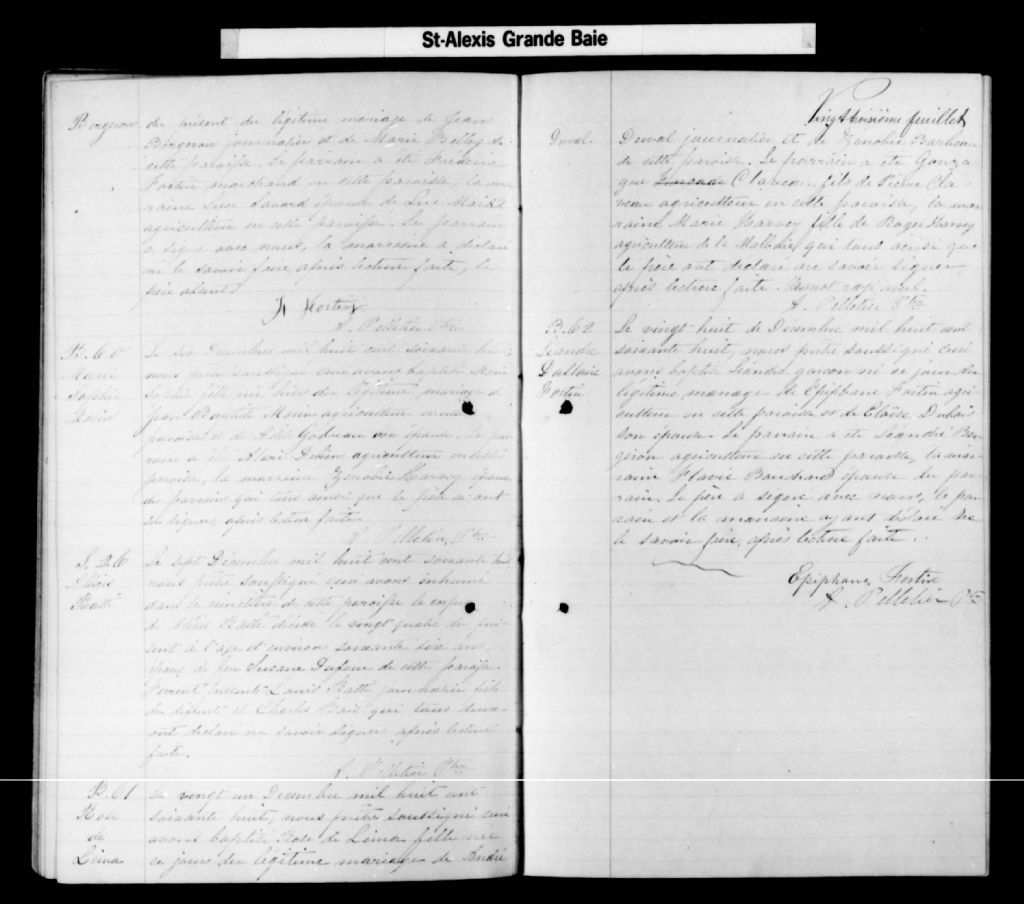 St-Alexis Grande Baie
Bergeron
du présent du légitime mariage de Jean
Bergeron journalier et de Marie Bolley de
cette paroisse. Le parrain a été Frédéric
Fortin marchand en cette paroisse, la mar
raine Savard épouse de
agriculteur en cette paroisse. Le parrain
a signé avec nous, la marraine a déclaré
ne le savoir faire après lecture faite, le
père absent.
Fortin
L. Pelletier Ptre
B. 60
Marie
Sophie
Morin
Le six Decembre mil huit cent soixante huit
nous prêtre soussigné curé avons baptisé Marie
Sophie fille née hier du légitime mariage de
Jean Baptiste Morin agriculteur en cette
paroisse et de Adèle Godreau son épouse. Le par
rain a été agriculteur en cette
paroisse, la marraine Zénobie Harvey épouse
du parrain qui tous ainsi que le père n'ont
su signer, après lecture faite.
L. Pelletier, Ptre
S. 26
Alexis
Batté
Le sept Décembre mil huit cent soixante huit
nous prêtre soussigné curé avons inhumé
dans le cimetière de cette paroisse le corps
de Alexis Batté décédé le vingt quatre du pré
sent à l'age d'environ soixante six ans,
époux de feu Susane Dufour de cette paroisse.
Furent présents Louis Batté journalier fils
du défunt et Charles Bais qui tous deux
ont déclaré ne savoir signer après lecture
faite.
L. Pelletier Ptre
B. 61
Rose
de
Lima
Le vingt un Decembre mil huit cent
soixante huit, nous prêtre soussigné curé
avons baptisé Rose de Lima fille née
ce jour du légitime mariage de André
Vingt troisième feuillet
Duval
Duval journalier et de Zénobie Barbeau
de cette paroisse. Le parrain a été Gonza
gue Claveau fils de Pierre Cla-
veau agriculteur en cette paroisse, la mar
raine Marie Harvey fille de Roger Harvey
agriculteur de la Malbaie, qui tous ainsi que
le père ont déclaré ne savoir signer
après lecture faite. Un mot rayé nul.
L. Pelletier Ptre
B. 62
Léandre
Dallaire
Fortin
Le vingt huit de Décembre mil huit cent
soixante huit, nous prêtre soussigné curé
avons baptisé Léandre garçon né ce jour du
légitime mariage de Epiphane Fortin agri-
culteur en cette paroisse et de Eloïse Dubois
son épouse. Le parrain a été Léandre Ber
geron agriculteur en cette paroisse, la mar
raine Flavie Bouchard épouse du par
rain. Le père a signé avec nous, le par
rain et la marraine ayant déclaré ne
le savoir faire, après lecture faite.
Epiphane Fortin
L. Pelletier Ptre